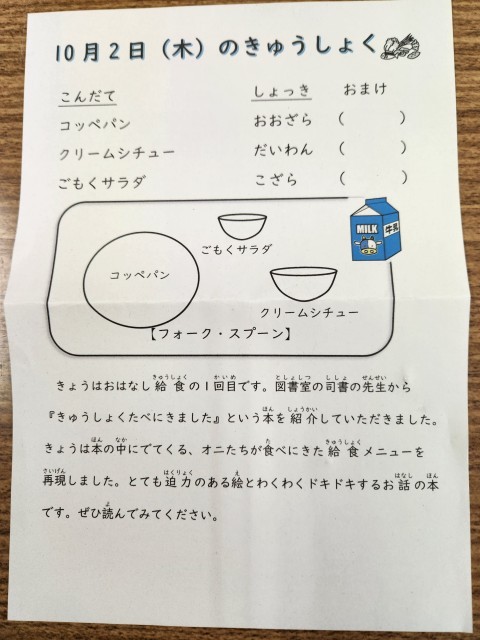 10月2日（木）のきゅうしょく
こんだて　しょっき　おまけ
コッペパン　おおざら　（　　　）
クリームシチュー　だいわん　（　　　）
ごもくサラダ　こざら　（　　　）
MILK 牛乳
ごもくサラダ
コッペパン
クリームシチュー
【フォーク・スプーン】
きょうはおはなし給食の1回目です。図書室の司書の先生から
『きゅうしょくたべにきました』という本を紹介していただきました。
きょうは本の中にでてくる、オニたちが食べにきた給食メニューを
再現しました。とても迫力のある絵とわくわくドキドキするお話の本
です。ぜひ読んでみてください。